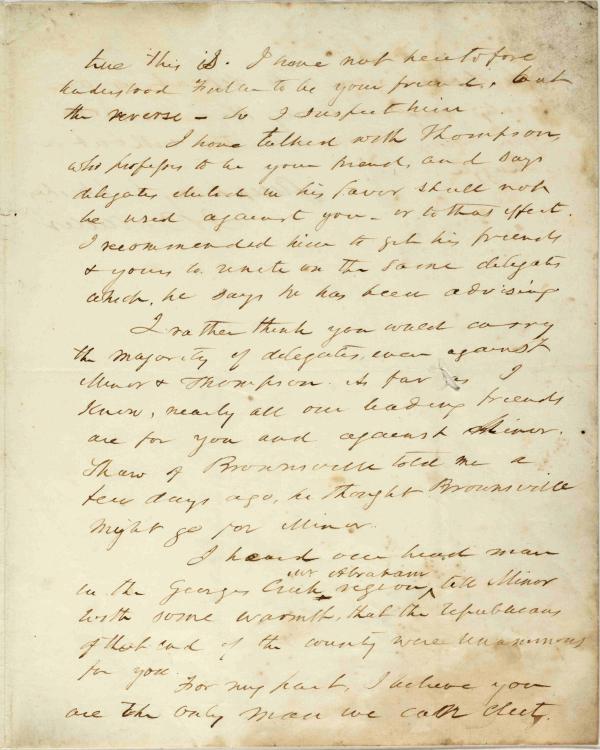 true this is. I have not heretofore
understood Fuller to be your friend, but
the reverse – So I suspect him
I have talked with Thompson,
who professes to be your friend, and says
delegates elected in his favor shall not
be used against you – or to that effect.
I recommended him to get his friends
& yours to unite on the same delegates
which, he says he has been advising
I rather think you would carry
the majority of delegates, even against
Minor & Thompson. As far as I
Know, nearly all our leading friends
are for you and against Minor.
Shaw of Brownsville told me a
few days ago, he thought Brownsville
might go for Minor.
I heard our head man
in the Georges Creek region,
Mr Abraham
tell Minor
with some warmth, that the republicans
of that end of the county were unanimous
for you.
For my part, I believe you
are the only man we can elect.